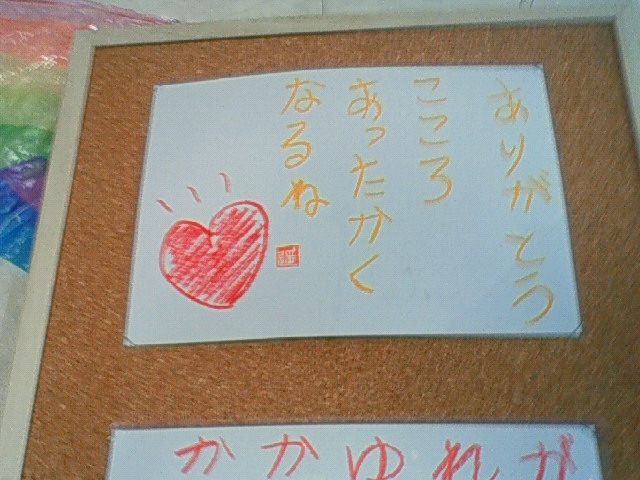 ありがとう
こころ
あったかく
なるね
が
れ
ゆ
か
か